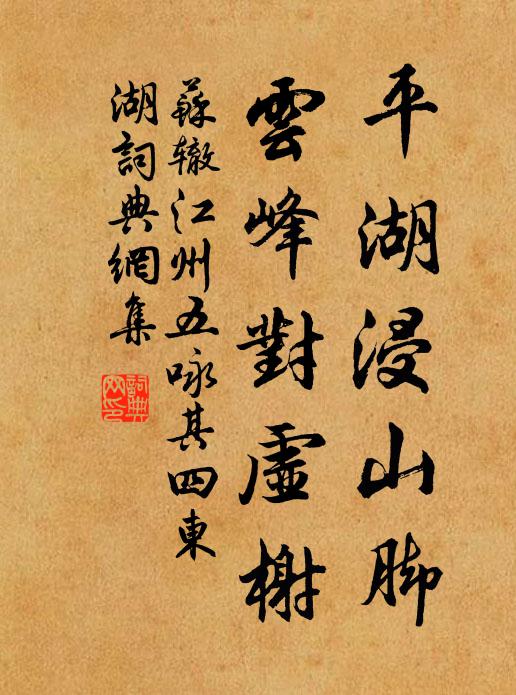 平湖浸山脚
雲峰對虛榭
蘇辙江州五咏其四東
湖詞典網集
詞典网印